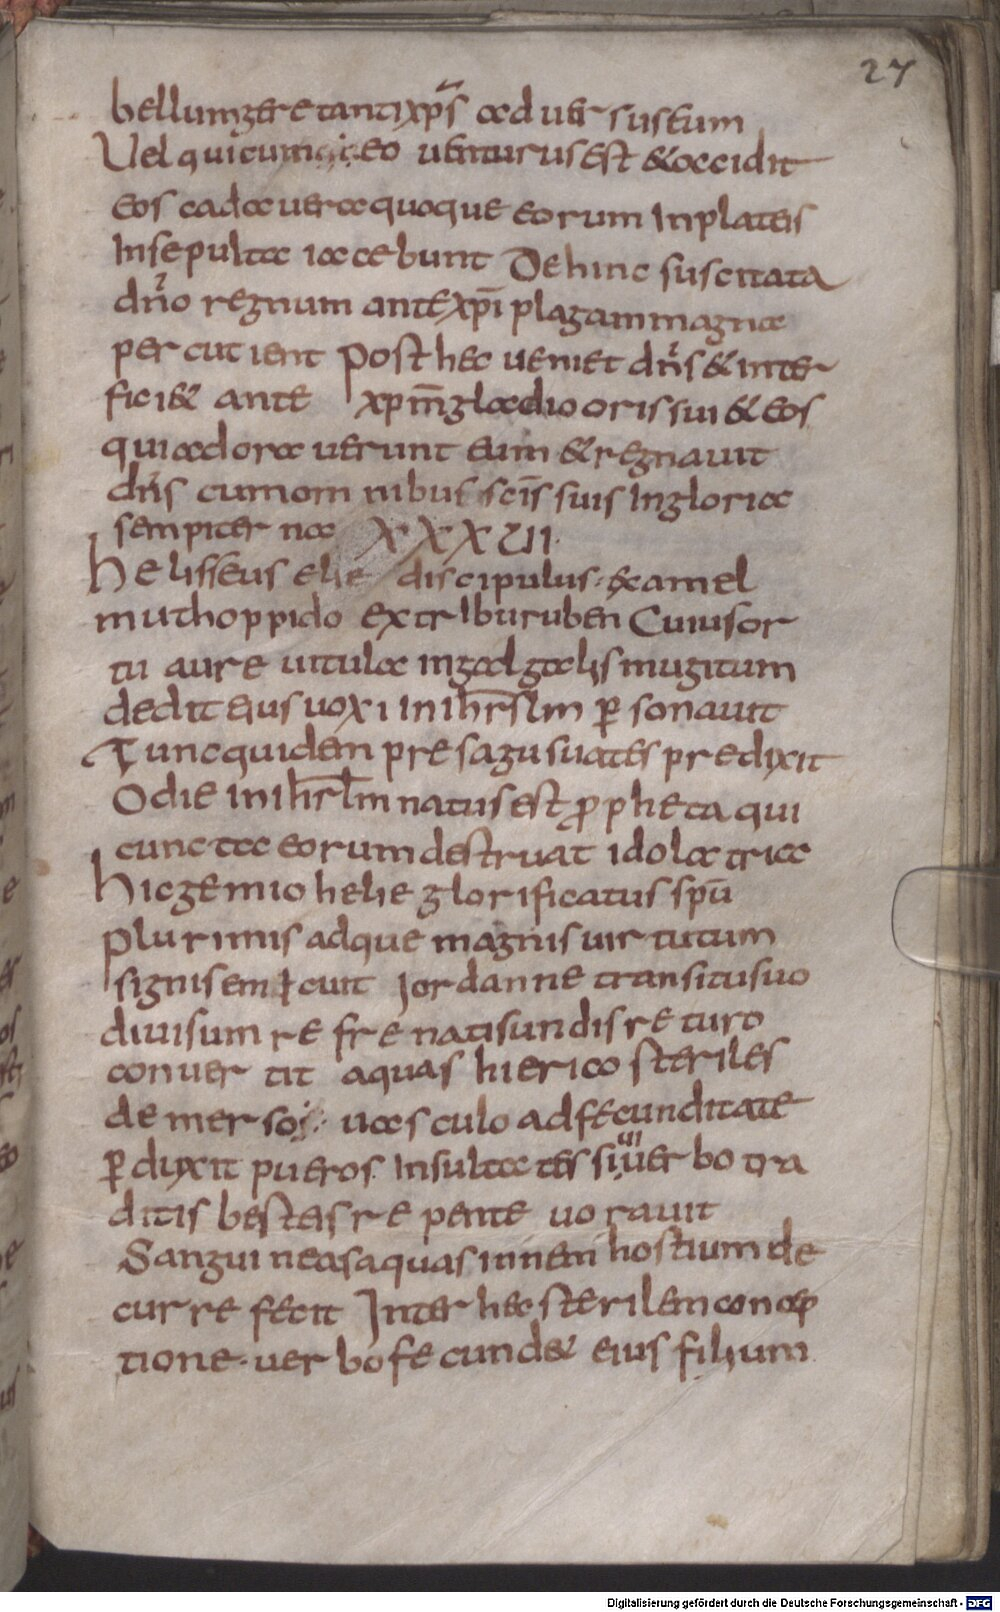 27
bellumgere tantixp̄s aduersuseum
Vel quicum eo uenturus est &occidit
eos cadauera quoque eorum Inplateis
Insepulta iacebunt Dehinc suscitata
dn̄o regnum antexp̄i plagammagna
percutient post hec ueniet dn̄s &inter
fici& ante xpm̄gladio oris sui &eos
quiadorauerunt eum &regnauit
dn̄s cumomnibus sc̄is suis Ingloria
sempiterna XXXVII.
helisseus elie discipulus. examel
muthoppido extribu ruben Cuiusor
tu aure uitula ingadgalis mugitum
dedit eius uox i inihr̄slm ꝑsonauit
Tuncquidem presagusuates predixit
Odie inihrl̄m natus est ꝓpheta qui
cuncta eorum destruat idolatria
hicgemio helie glorificatus spū
plurimis adque magnis uirtutum
signis emicuit Jordanne transitusuo
diuisum refrenatisundis returo
conuertit aquas hierico steriles
demerso uasculo adfecunditate
ꝑdixit pueros Insultates siui uerbo tra
ditis besteis repente uorauit
Sanguineasaquas innem hostium de
curre fecit Inter hec sterilem concep
tione.uerbo fecund& eius filium
Digitalisierung gefördert durch die Deutsche Forschungsgemeinschaft - DFG